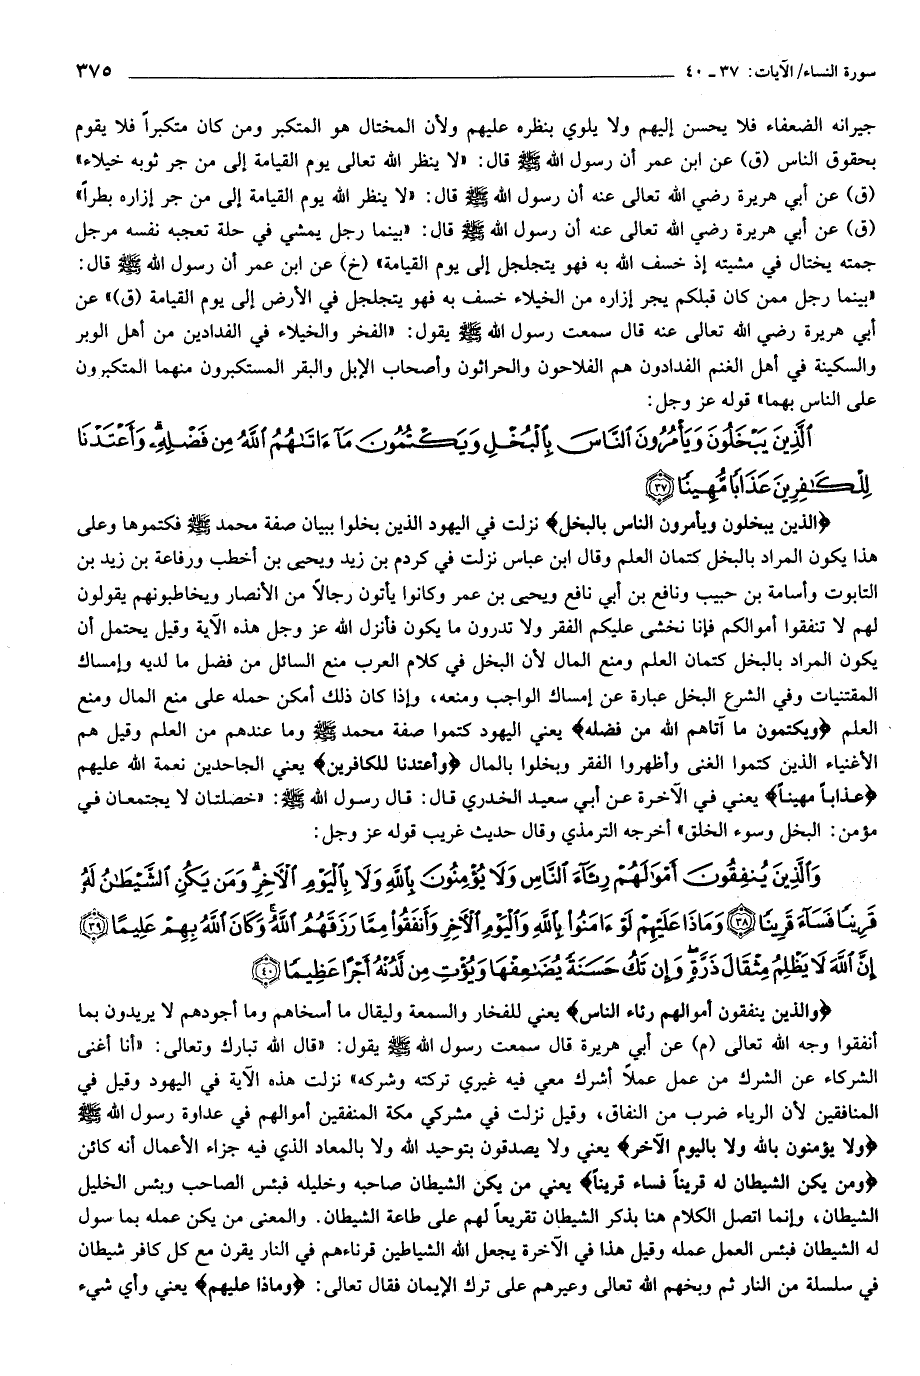 سورة النساء/ الآيات: ٣٧ - ٤٠ ٣٧٥
جيرانه الضعفاء فلا يحسن إليهم ولا يلوي بنظره عليهم ولأن المختال هو المتكبر ومن كان متكبراً فلا يقوم
بحقوق الناس (ق) عن ابن عمر أن رسول الله ﷺ قال: «لا ينظر الله تعالى يوم القيامة إلى من جر ثوبه خيلاء»
(ق) عن أبي هريرة رضي الله تعالى عنه أن رسول الله ﷺ قال: «لا ينظر الله يوم القيامة إلى من جر إزاره بطراً»
(ق) عن أبي هريرة رضي الله تعالى عنه أن رسول الله ﷺ قال: «بينما رجل يمشي في حلة تعجبه نفسه مرجل
جمته يختال في مشيته إذ خسف الله به فهو يتجلجل إلى يوم القيامة» (خ) عن ابن عمر أن رسول الله ﷺ قال:
«بينما رجل ممن كان قبلكم يجر إزاره من الخيلاء خسف به فهو يتجلجل في الأرض إلى يوم القيامة (ق)» عن
أبي هريرة رضي الله تعالى عنه قال سمعت رسول الله ﷺ يقول: «الفخر والخيلاء في الفدادين من أهل الوبر
والسكينة في أهل الغنم الفدادون هم الفلاحون والحراثون وأصحاب الإبل والبقر المستكبرون منهما المتكبرون
على الناس بهما» قوله عز وجل:
ٱلَّذِينَ يَبْخَلُونَ وَيَأْمُرُونَ ٱلنَّاسَ بِٱلْبُخْلِ وَيَكْتُمُونَ مَآ ءَاتَىٰهُمُ ٱللَّهُ مِن فَضْلِهِۦ وَأَعْتَدْنَا
لِلْكَٰفِرِينَ عَذَابًا مُّهِينًا ٣٧
﴿الذين يبخلون ويأمرون الناس بالبخل﴾ نزلت في اليهود الذين بخلوا ببيان صفة محمد ﷺ فكتموها وعلى
هذا يكون المراد بالبخل كتمان العلم وقال ابن عباس نزلت في كردم بن زيد ويحيى بن أخطب ورفاعة بن زيد بن
التابوت وأسامة بن حبيب ونافع بن أبي نافع ويحيى بن عمر وكانوا يأتون رجالاً من الأنصار ويخاطبونهم يقولون
لهم لا تنفقوا أموالكم فإنا نخشى عليكم الفقر ولا تدرون ما يكون فأنزل الله عز وجل هذه الآية وقيل يحتمل أن
يكون المراد بالبخل كتمان العلم ومنع المال لأن البخل في كلام العرب منع السائل من فضل ما لديه وإمساك
المقتنيات وفي الشرع البخل عبارة عن إمساك الواجب ومنعه، وإذا كان ذلك أمكن حمله على منع المال ومنع
العلم ﴿ويكتمون ما آتاهم الله من فضله﴾ يعني اليهود كتموا صفة محمد ﷺ وما عندهم من العلم وقيل هم
الأغنياء الذين كتموا الغنى وأظهروا الفقر وبخلوا بالمال ﴿وأعتدنا للكافرين﴾ يعني الجاحدين نعمة الله عليهم
﴿عذاباً مهيناً﴾ يعني في الآخرة عن أبي سعيد الخدري قال: قال رسول الله ﷺ: «خصلتان لا يجتمعان في
مؤمن: البخل وسوء الخلق» أخرجه الترمذي وقال حديث غريب قوله عز وجل:
وَٱلَّذِينَ يُنفِقُونَ أَمْوَٰلَهُمْ رِئَآءَ ٱلنَّاسِ وَلَا يُؤْمِنُونَ بِٱللَّهِ وَلَا بِٱلْيَوْمِ ٱلْءَاخِرِ وَمَن يَكُنِ ٱلشَّيْطَٰنُ لَهُۥ
قَرِينًا فَسَآءَ قَرِينًا ٣٨ وَمَاذَا عَلَيْهِمْ لَوْ ءَامَنُوا۟ بِٱللَّهِ وَٱلْيَوْمِ ٱلْءَاخِرِ وَأَنفَقُوا۟ مِمَّا رَزَقَهُمُ ٱللَّهُ وَكَانَ ٱللَّهُ بِهِمْ عَلِيمًا ٣٩
إِنَّ ٱللَّهَ لَا يَظْلِمُ مِثْقَالَ ذَرَّةٍ وَإِن تَكُ حَسَنَةً يُضَٰعِفْهَا وَيُؤْتِ مِن لَّدُنْهُ أَجْرًا عَظِيمًا ٤٠
﴿والذين ينفقون أموالهم رئاء الناس﴾ يعني للفخار والسمعة وليقال ما أسخاهم وما أجودهم لا يريدون بما
أنفقوا وجه الله تعالى (م) عن أبي هريرة قال سمعت رسول الله ﷺ يقول: «قال الله تبارك وتعالى: «أنا أغنى
الشركاء عن الشرك من عمل عملاً أشرك معي فيه غيري تركته وشركه» نزلت هذه الآية في اليهود وقيل في
المنافقين لأن الرياء ضرب من النفاق، وقيل نزلت في مشركي مكة المنفقين أموالهم في عداوة رسول الله ﷺ
﴿ولا يؤمنون بالله ولا باليوم الآخر﴾ يعني ولا يصدقون بتوحيد الله ولا بالمعاد الذي فيه جزاء الأعمال أنه كائن
﴿ومن يكن الشيطان له قريناً فساء قريناً﴾ يعني من يكن الشيطان صاحبه وخليله فبئس الصاحب وبئس الخليل
الشيطان، وإنما اتصل الكلام هنا بذكر الشيطان تقريعاً لهم على طاعة الشيطان. والمعنى من يكن عمله بما سول
له الشيطان فبئس العمل عمله وقيل هذا في الآخرة يجعل الله الشياطين قرناءهم في النار يقرن مع كل كافر شيطان
في سلسلة من النار ثم وبخهم الله تعالى وعيرهم على ترك الإيمان فقال تعالى: ﴿وماذا عليهم﴾ يعني وأي شيء